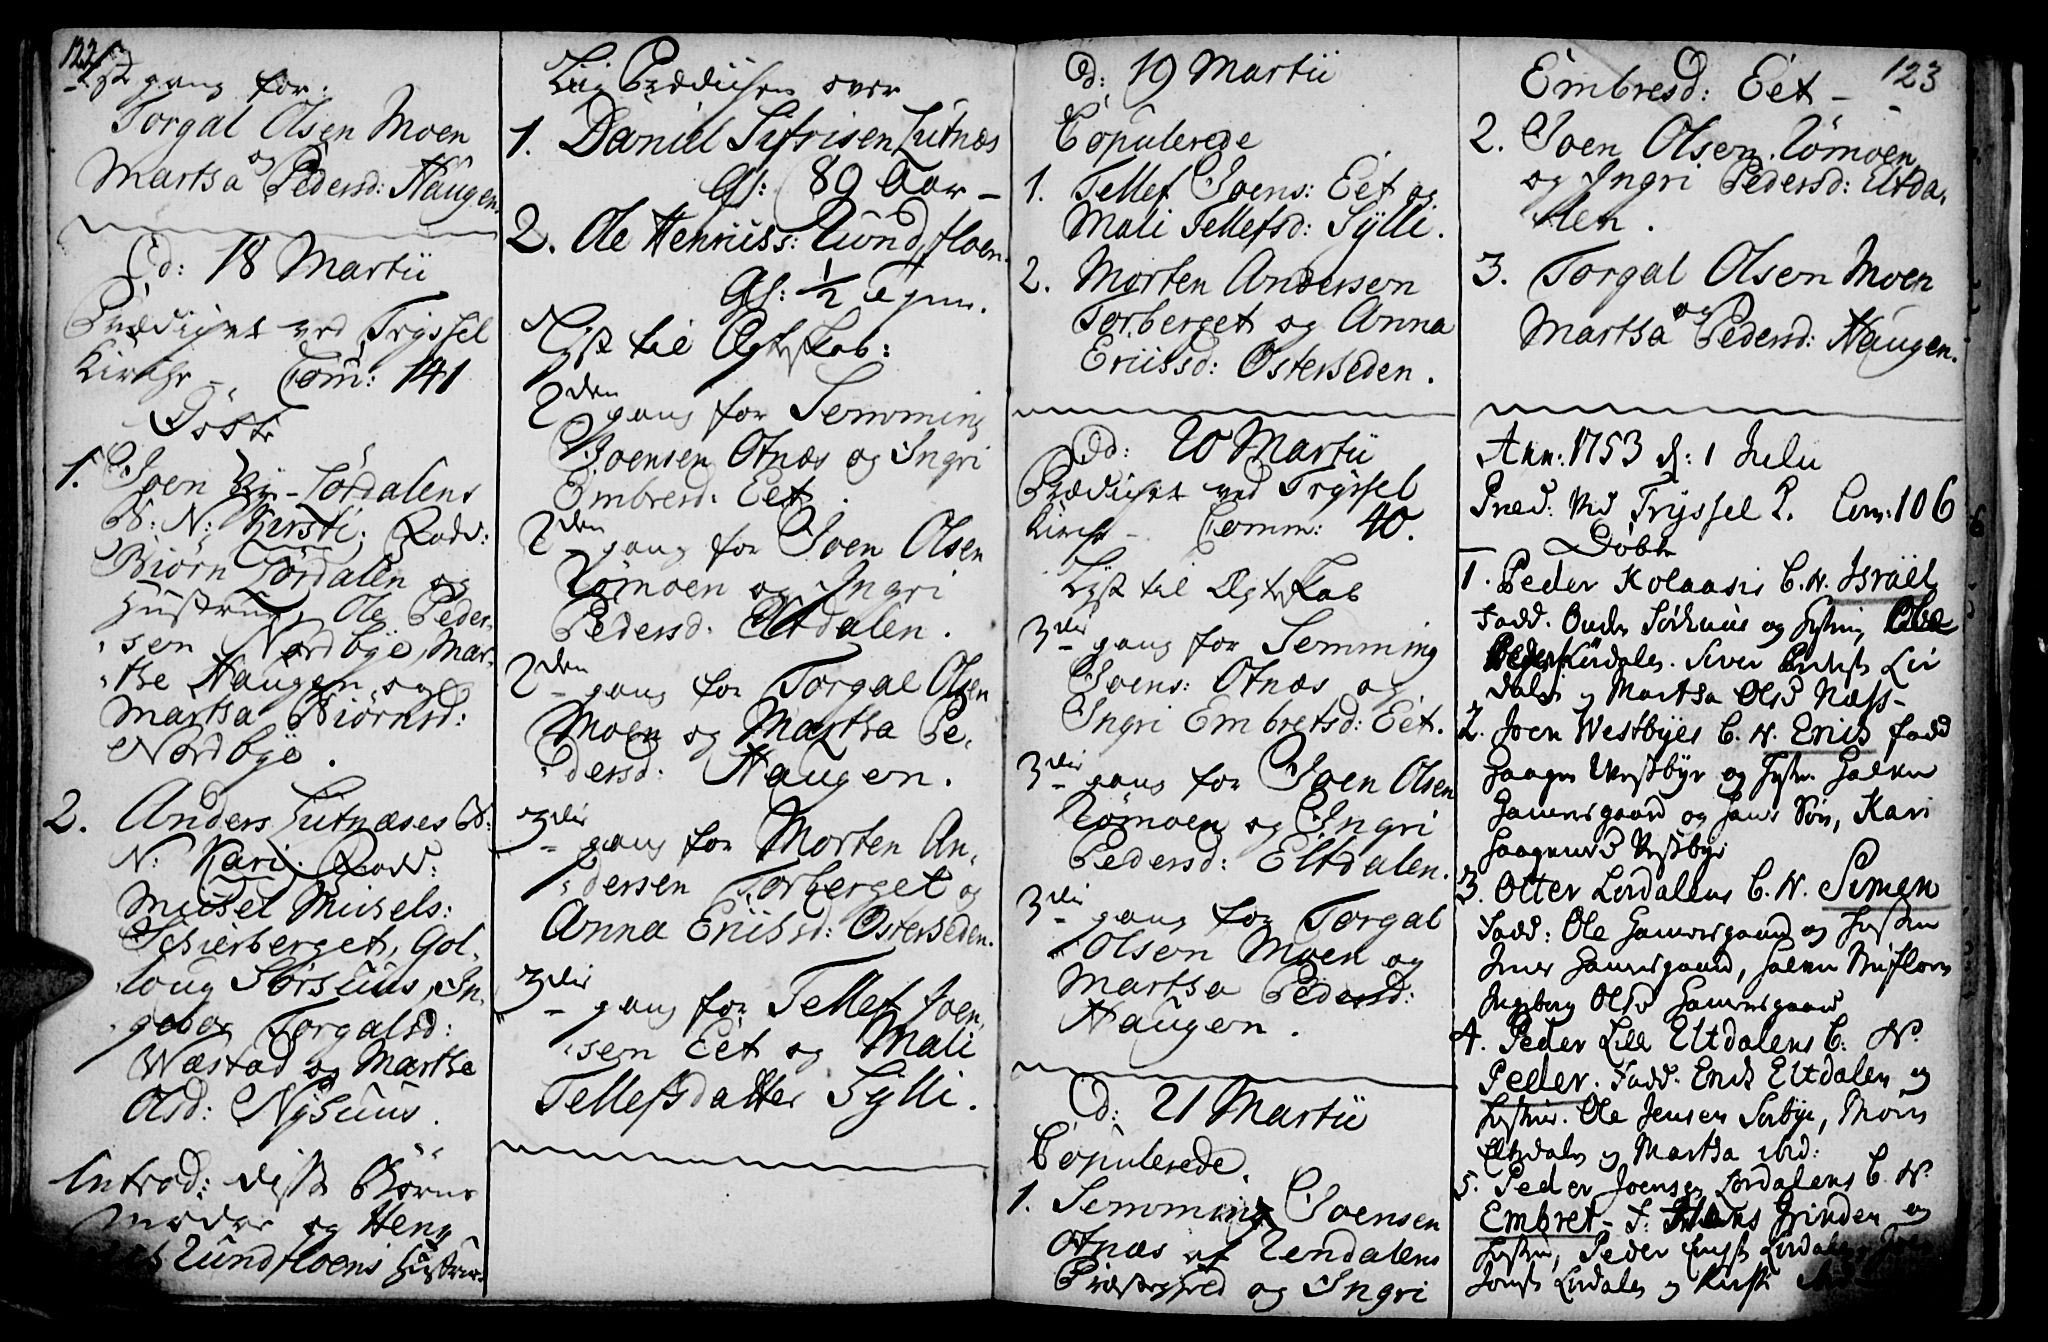 122
1st gang for.
Torgal Olsen Moen
og
Martha Pedersd: Haugen.
D: 18 Martii
Prædichet ved Tryssel
Kirche – Com: 141
Døbte
1. Joen Lørdalens
B: N: Kersti. Fadd:
Biørn Lørdalen og
Hustrue, Ole Peder-
sen Nordbye, Mar-
the Haugen og
Martha Biørnsd:
Nordbye.
2. Anders Lutnæses B:
N: Kari. Fadd:
Misel Misels:
Schierberget, Gol-
loug Sørhuus, In-
gebor Torgalsd:
Wæstad og Marthe
Olsd: Nyhuus.
Introd: disse Børns
Mødre og Hen
Lundfloens Hustrue
Liig Prædichen over
1. Daniel Sifrisen Lutnæs
Gl: 89 Aar –
2. Ole Henriss: Lundfloen.
Gl: 1/2 Ugnn.
Lyst til Ægteskab:
2den gang for Semming
Joensen Otnæs og Ingri
Embresd: Eet.
2den gang for Joen Olsen
Lømoen og Ingri
Pedersd: Eltdalen.
2den gang for Torgal Olsen
Moen og Martha Pe-
dersd: Haugen.
3die gang for Morten An-
dersen Torberget og
Anna Eriisd: Osterseden.
3die gang for Tellef Joen-
sen Eet og Mali
Tellefsdatter Sylli.
D: 19 Martii
Copulerede
1. Tellef Joens: Eet og
Mali Tellefsd: Sylli.
2. Morten Andersen
Torberget og Anna
Eriissd: Osterseden.
D: 20 Martii
Prædichet ved Tryssel
Kirche – Comm: 40.
Lyst til Ægteskab
3die gang for Semming
Joens: Otnæs og
Ingri Embretsd: Eet.
3die gang for Joen Olsen
Lømoen og Ingri
Pedersd: Eltdalen.
3die gang for Torgal
Olsen Moen og
Martha Pedersd:
Haugen.
D: 21 Martii
Copulerede.
1. Semming Joensen
Otnæs af Rendalens
Præstegield og Ingri
123
Embresd: Eet –
2. Joen Olsen Lømoen
og Ingri Pedersd: Eltda-
len.
3. Torgal Olsen Moen
og
Martha Pedersd: Haugen.
Ann: 1753 d: 1 Julii
Præd: ved Tryssel K. Com: 106
Døbte
1. Peder Kolaasis B. N. Israel
Fadd. Ander Sørhuus og Hustru,
Lørdalen. Siver Lør
dalen og Martha Olsd Næss –
2. Joen Westbyes B. N. Erich Fadd
Haagen Westbye og Hustru Halvor
Hammergaard og hans Søn, Kari
Haagensd Westbye
3. Otter Lørdalens B. N. Simen
Fadd: Ole Hammergaard og Hustru
Hammergaard, Halvor
Ingeborg Olsd Hammergaard
4. Peder Lill Eltdalens B: N.
Peder. Fadd. Erich Eltdalen og
Hustrue. Ole Jensen Sørbye,
Eltdalen og Martha ibid:
5. Peder Joensen Lørdalens B. N.
Embret – F: Grinden og
Hustru, Peder Lørdalen
Lørdalen og Kersti